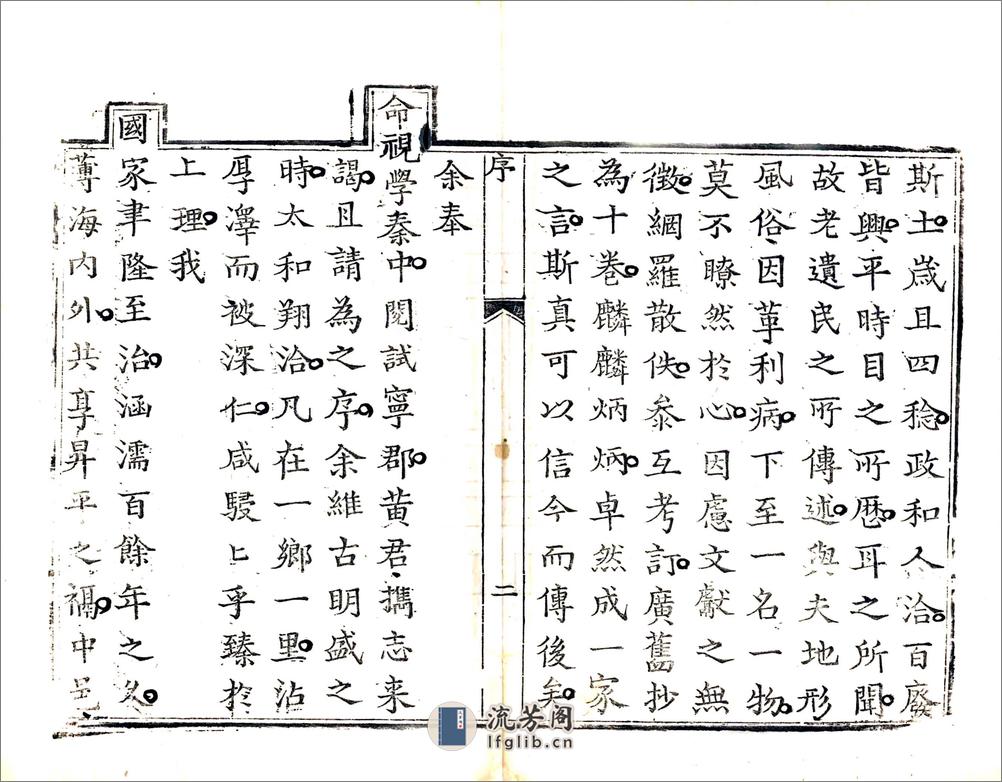 斯土歲且四稔政和人洽百廢
皆興平時目之所歷耳之所聞
故老遺民之所傳述與夫地形
風俗因革利病下至一名一物
莫不瞭然於心因慮文獻之無
徵網羅散佚叅互考訂廣舊抄
為十卷麟麟炳炳卓然成一家
之言斯真可以信今而傳後矣
序
二
余奉
命視學秦中閱試寧郡黃君攜志来
謁且請為之序余維古明盛之
時太和翔洽凡在一鄉一里沾
厚澤而被深仁咸駸〻乎臻於
上理我
國家聿隆至治涵濡百餘年之久
薄海内外共享昇平之福中邑
流芳阁
lfglib.cn